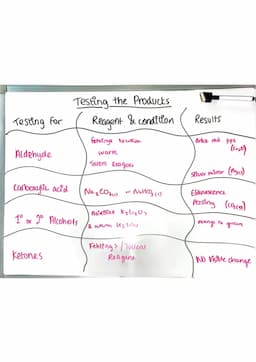 Testing the Products
Testing for
Reagent & condition
Results
Aldehyde
Fehlings solution
warm
Tollens Reagent
Brick red ppt
(Cu₂O)
Silver mirror (Ag(s))
Carboxylic acid
Na₂CO₃(s) or NaHCO₃(s)
Effervescence
Fizzing (CO₂(g))
1° or 2° Alcohols
Acidified K₂Cr₂O₇
& warm H₂SO₄
orange to green
Ketones
Fehlings / Tollens
Reagent
No visible change